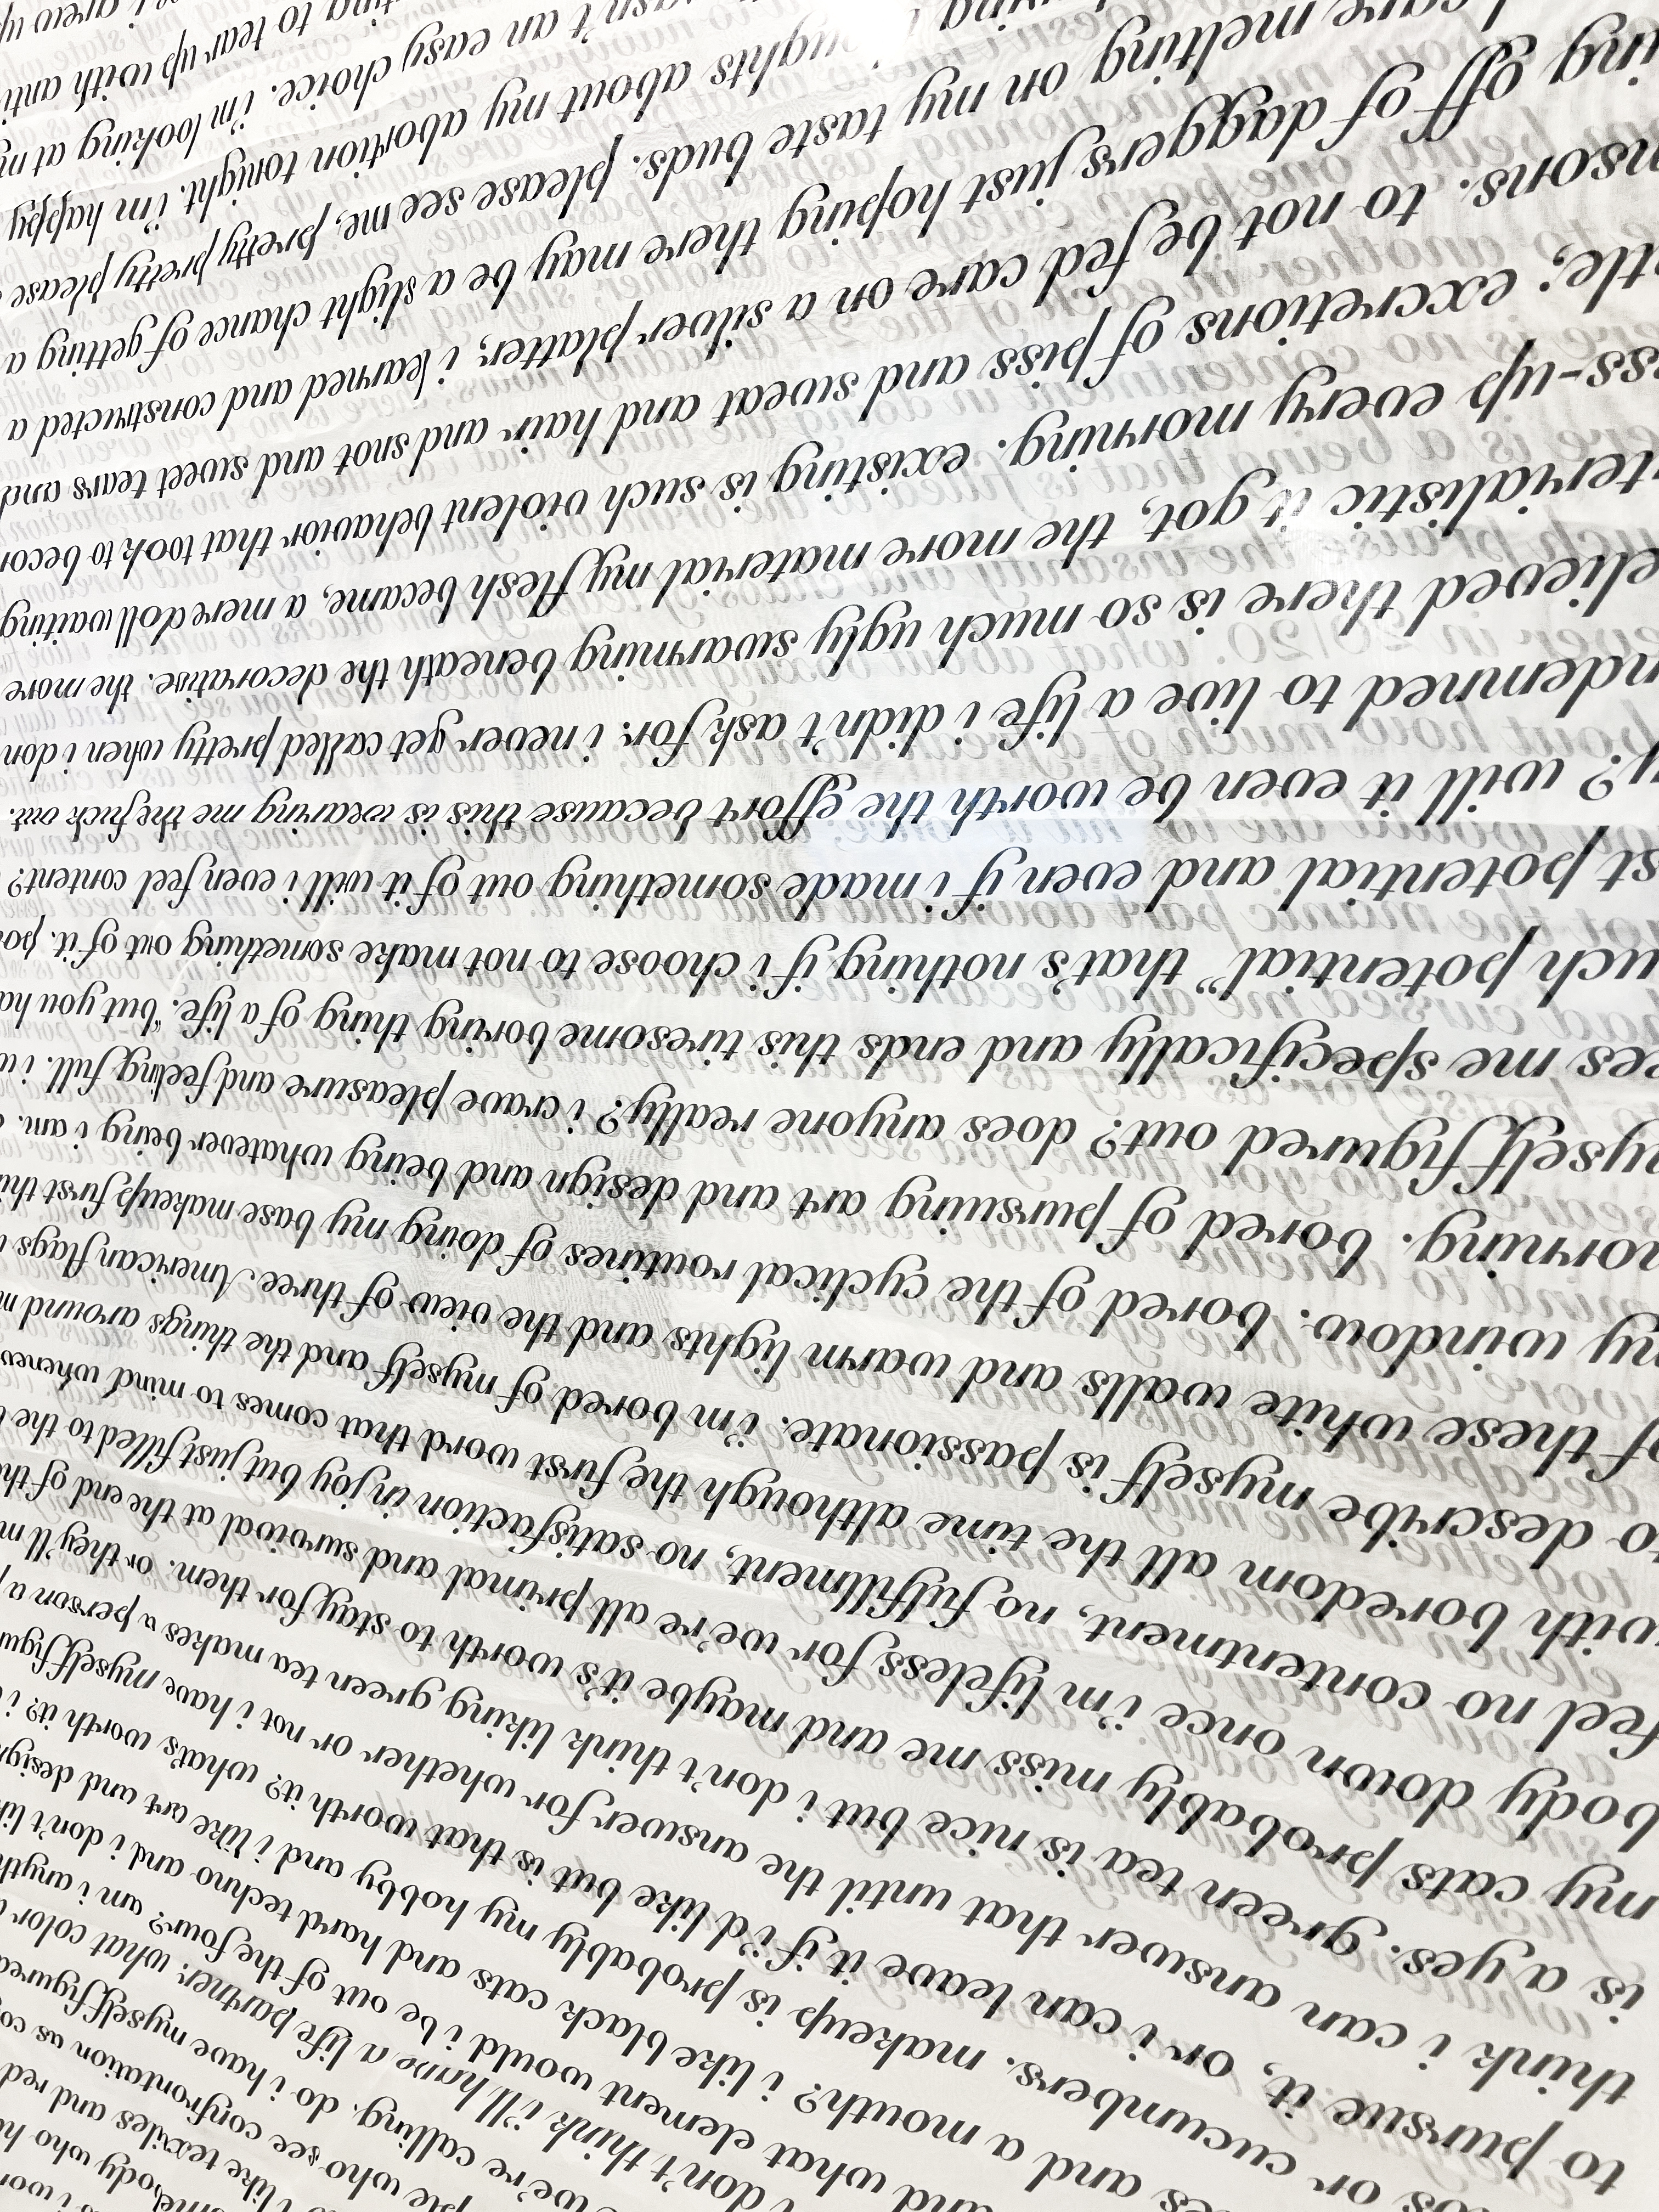 i wor
who h
i like textiles and red
who see confrontation as co
we're calling. do i have myself figured
i don't think i'll have a life partner. what color
and what element would i be out of the four? am i anyth
es and a mouth? i like black cats and hard techno and i don't lik
os or cucumbers. makeup is probably my hobby and i like art and design
to pursue it, or i can leave it if i'd like but is that worth it? what's worth it? i
think i can answer that until the answer for whether or not i have myself figu
is a yes. green tea is nice but i don't think liking green tea makes a person a p
my cats probably miss me and maybe it's worth to stay for them. or they'll m
body down once i'm lifeless for we're all primal and survival at the end of the
feel no contentment, no fulfillment, no satisfaction in joy but just filled to the
with boredom all the time although the first word that comes to mind whenev
to describe myself is passionate. i'm bored of myself and the things around m
of these white walls and warm lights and the view of three American flags
my window. bored of the cyclical routines of doing my base makeup first thi
morning. bored of pursuing art and design and being whatever being i am.
myself figured out? does anyone really? i crave pleasure and feeling full. i w
ces me specifically and ends this tiresome boring thing of a life. "but you ha
uch potential" that's nothing if i choose to not make something out of it. po
st potential and even if i made something out of it will i even feel content?
y? will it even be worth the effort because this is wearing me the fuck out.
ndemned to live a life i didn't ask for. i never get called pretty when i don
elieved there is so much ugly swarming beneath the decorative. the more
terialistic it got, the more material my flesh became, a mere doll waiting
ess-up every morning. existing is such violent behavior that took to becom
tle; excretions of piss and sweat and hair and snot and sweet tears and
nsons. to not be fed care on a silver platter, i learned and constructed a
ing off of daggers just hoping there may be a slight chance of getting a
care melting on my taste buds. please see me, pretty pretty please
ughts about my abortion tonight. i'm happy
wasn't an easy choice. i'm looking at my
to tear up with anti
i grew up